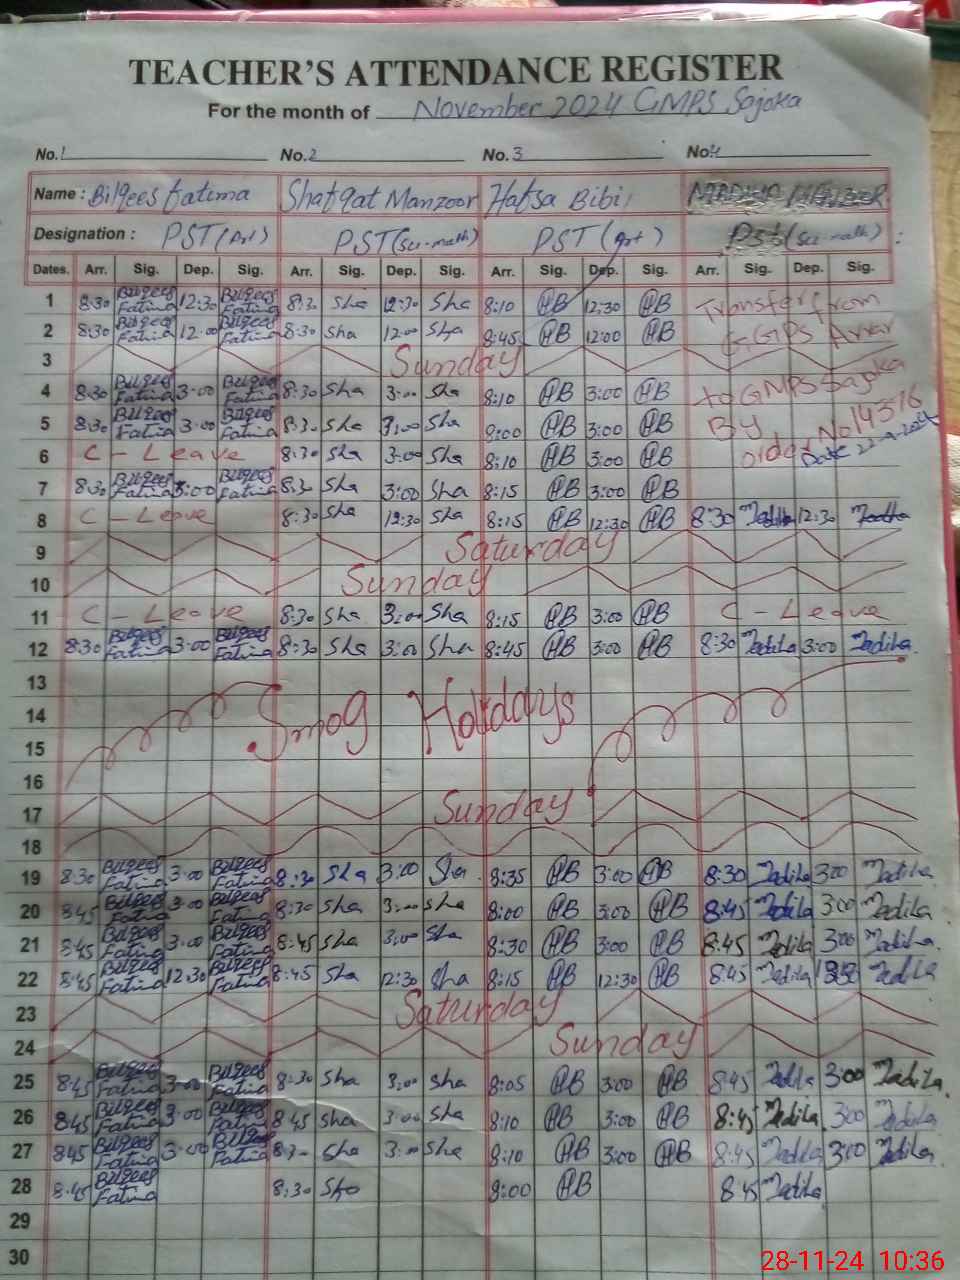 TEACHER'S ATTENDANCE REGISTER
For the month of November 2024 GMPS Sajoka
No.1 No.2 No.3 No.4
Name : Bilqees fatima Shafqat Manzoor Hafsa Bibi MANZOOR
Designation : PST (Art) PST (Sci-math) PST (Art) PST (Sci-math)
Dates. Arr. Sig. Dep. Sig. Arr. Sig. Dep. Sig. Arr. Sig. Dep. Sig. Arr. Sig. Dep. Sig.
1 8:30 Bilqees Fatima 12:30 Bilqees Fatima 8:30 Sha 12:30 Sha 8:10 HB 12:30 HB Transfer from
2 8:30 Bilqees Fatima 12:00 Bilqees Fatima 8:30 Sha 12:00 Sha 8:45 HB 12:00 HB GGPS
3 Sunday
4 8:30 Bilqees Fatima 3:00 Bilqees Fatima 8:30 Sha 3:00 Sha 8:10 HB 3:00 HB to GMPS Sajoka
5 8:30 Bilqees Fatima 3:00 Bilqees Fatima 8:30 Sha 3:00 Sha 8:00 HB 3:00 HB By order No 14376
6 C - Leave 8:30 Sha 3:00 Sha 8:10 HB 3:00 HB Date
7 8:30 Bilqees Fatima 3:00 Bilqees Fatima 8:30 Sha 3:00 Sha 8:15 HB 3:00 HB
8 C - Leave 8:30 Sha 12:30 Sha 8:15 HB 12:30 HB 8:30 12:30
9 Saturday
10 Sunday
11 C - Leave 8:30 Sha 3:00 Sha 8:15 HB 3:00 HB C - Leave
12 8:30 Bilqees Fatima 3:00 Bilqees Fatima 8:30 Sha 3:00 Sha 8:45 HB 3:00 HB 8:30 Madiha 3:00 Madiha
13
14 Smog Holidays
15
16
17 Sunday
18
19 8:30 Bilqees Fatima 3:00 Bilqees Fatima 8:30 Sha 3:00 Sha 8:35 HB 3:00 HB 8:30 Madiha 3:00 Madiha
20 8:45 Bilqees Fatima 3:00 Bilqees Fatima 8:30 Sha 3:00 Sha 8:00 HB 3:00 HB 8:45 Madiha 3:00 Madiha
21 8:45 Bilqees Fatima 3:00 Bilqees Fatima 8:45 Sha 3:00 Sha 8:30 HB 3:00 HB 8:45 Madiha 3:00 Madiha
22 8:45 Bilqees Fatima 12:30 Bilqees Fatima 8:45 Sha 12:30 Sha 8:15 HB 12:30 HB 8:45 Madiha Madiha
23 Saturday
24 Sunday
25 8:45 Bilqees Fatima 3:00 Bilqees Fatima 8:30 Sha 3:00 Sha 8:05 HB 3:00 HB 8:45 Madiha 3:00 Madiha
26 8:45 Bilqees Fatima 3:00 Bilqees Fatima 8:45 Sha 3:00 Sha 8:10 HB 3:00 HB 8:45 Madiha 3:00 Madiha
27 8:45 Bilqees Fatima 3:00 Bilqees Fatima 8:30 Sha 3:00 Sha 8:10 HB 3:00 HB 8:45 Madiha 3:00 Madiha
28 8:45 Bilqees Fatima 8:30 Sha 8:00 HB 8:45 Madiha
29
30
28-11-24 10:36